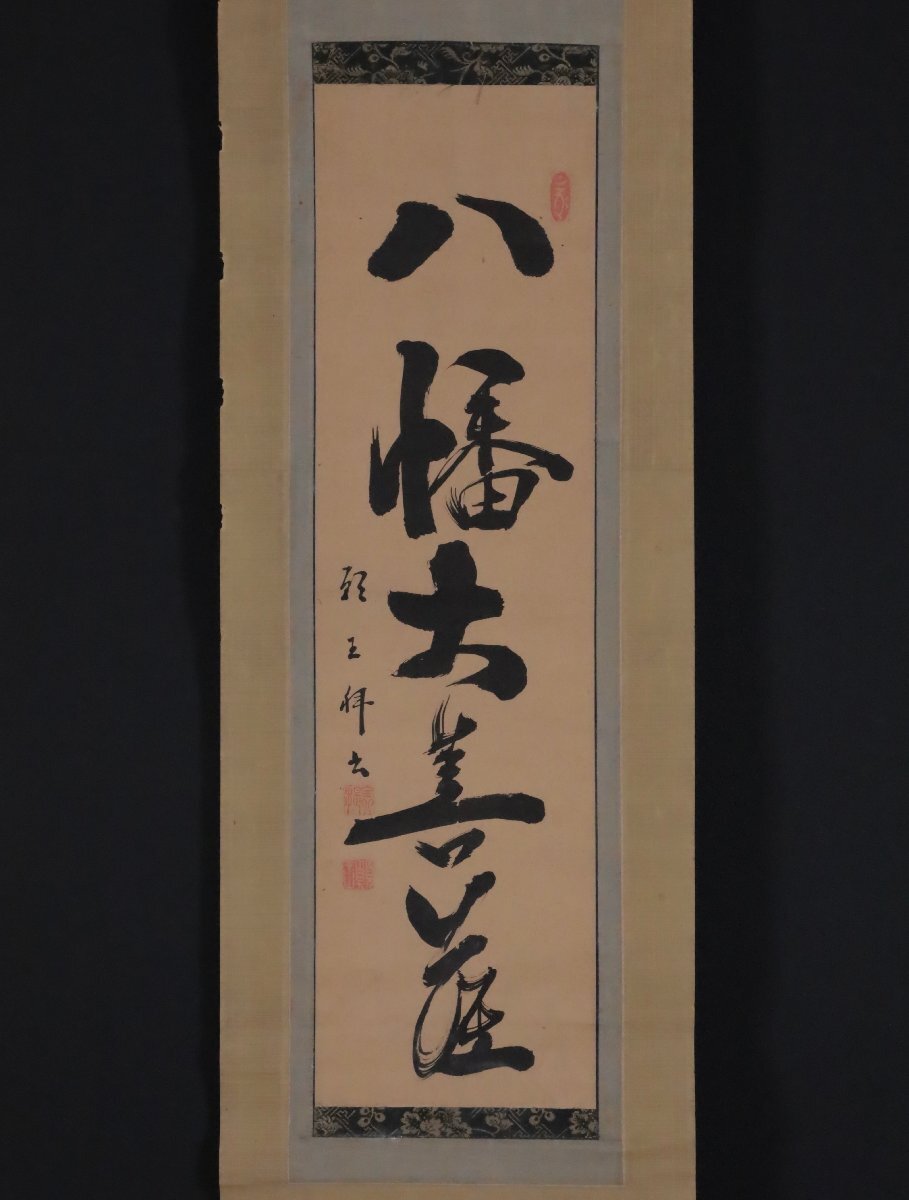 八幡大菩薩
王拜書